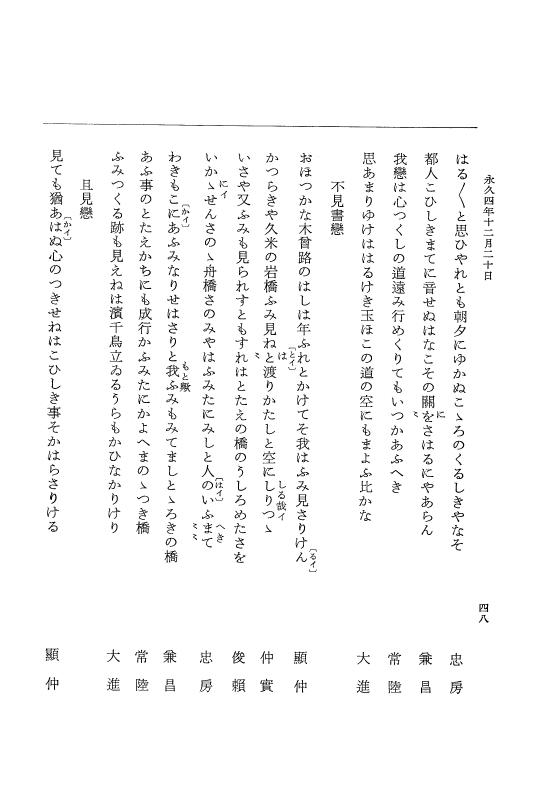 永久四年十二月二十日
四八
はる〱と思ひやれとも朝夕にゆかぬこゝろのくるしきやなそ　忠房
都人こひしきまてに音せぬはなこその關をさはるにやあらん　兼昌
に
ミ
我戀は心つくしの道遠み行めくりてもいつかあふへき　常陸
思あまりゆけははるけき玉ほこの道の空にもまよふ比かな　大進
不見書戀
おほつかな木曾路のはしは年ふれとかけてそ我はふみ見さりけん　顯仲
〔とイ〕
〔るイ〕
かつらきや久米の岩橋ふみ見ねと渡りかたしと空にしりつゝ　仲實
は
ミ
しる哉イ
いさや又ふみも見られすともすれはとたえの橋のうしろめたさを　俊頼
いかゝせんさのゝ舟橋さのみやはふみたにみしと人のいふまて　忠房
にイ
〔はイ〕
へき
ミミ
わきもこにあふみなりせはさりと我ふみもみてましとゝろきの橋　兼昌
〔かイ〕
もと歟
あふ事のとたえかちにも成行かふみたにかよへまのゝつき橋　常陸
ふみつくる跡も見えねは濱千鳥立ゐるうらもかひなかりけり　大進
且見戀
見ても猶あはぬ心のつきせねはこひしき事そかはらさりける　顯仲
〔かイ〕